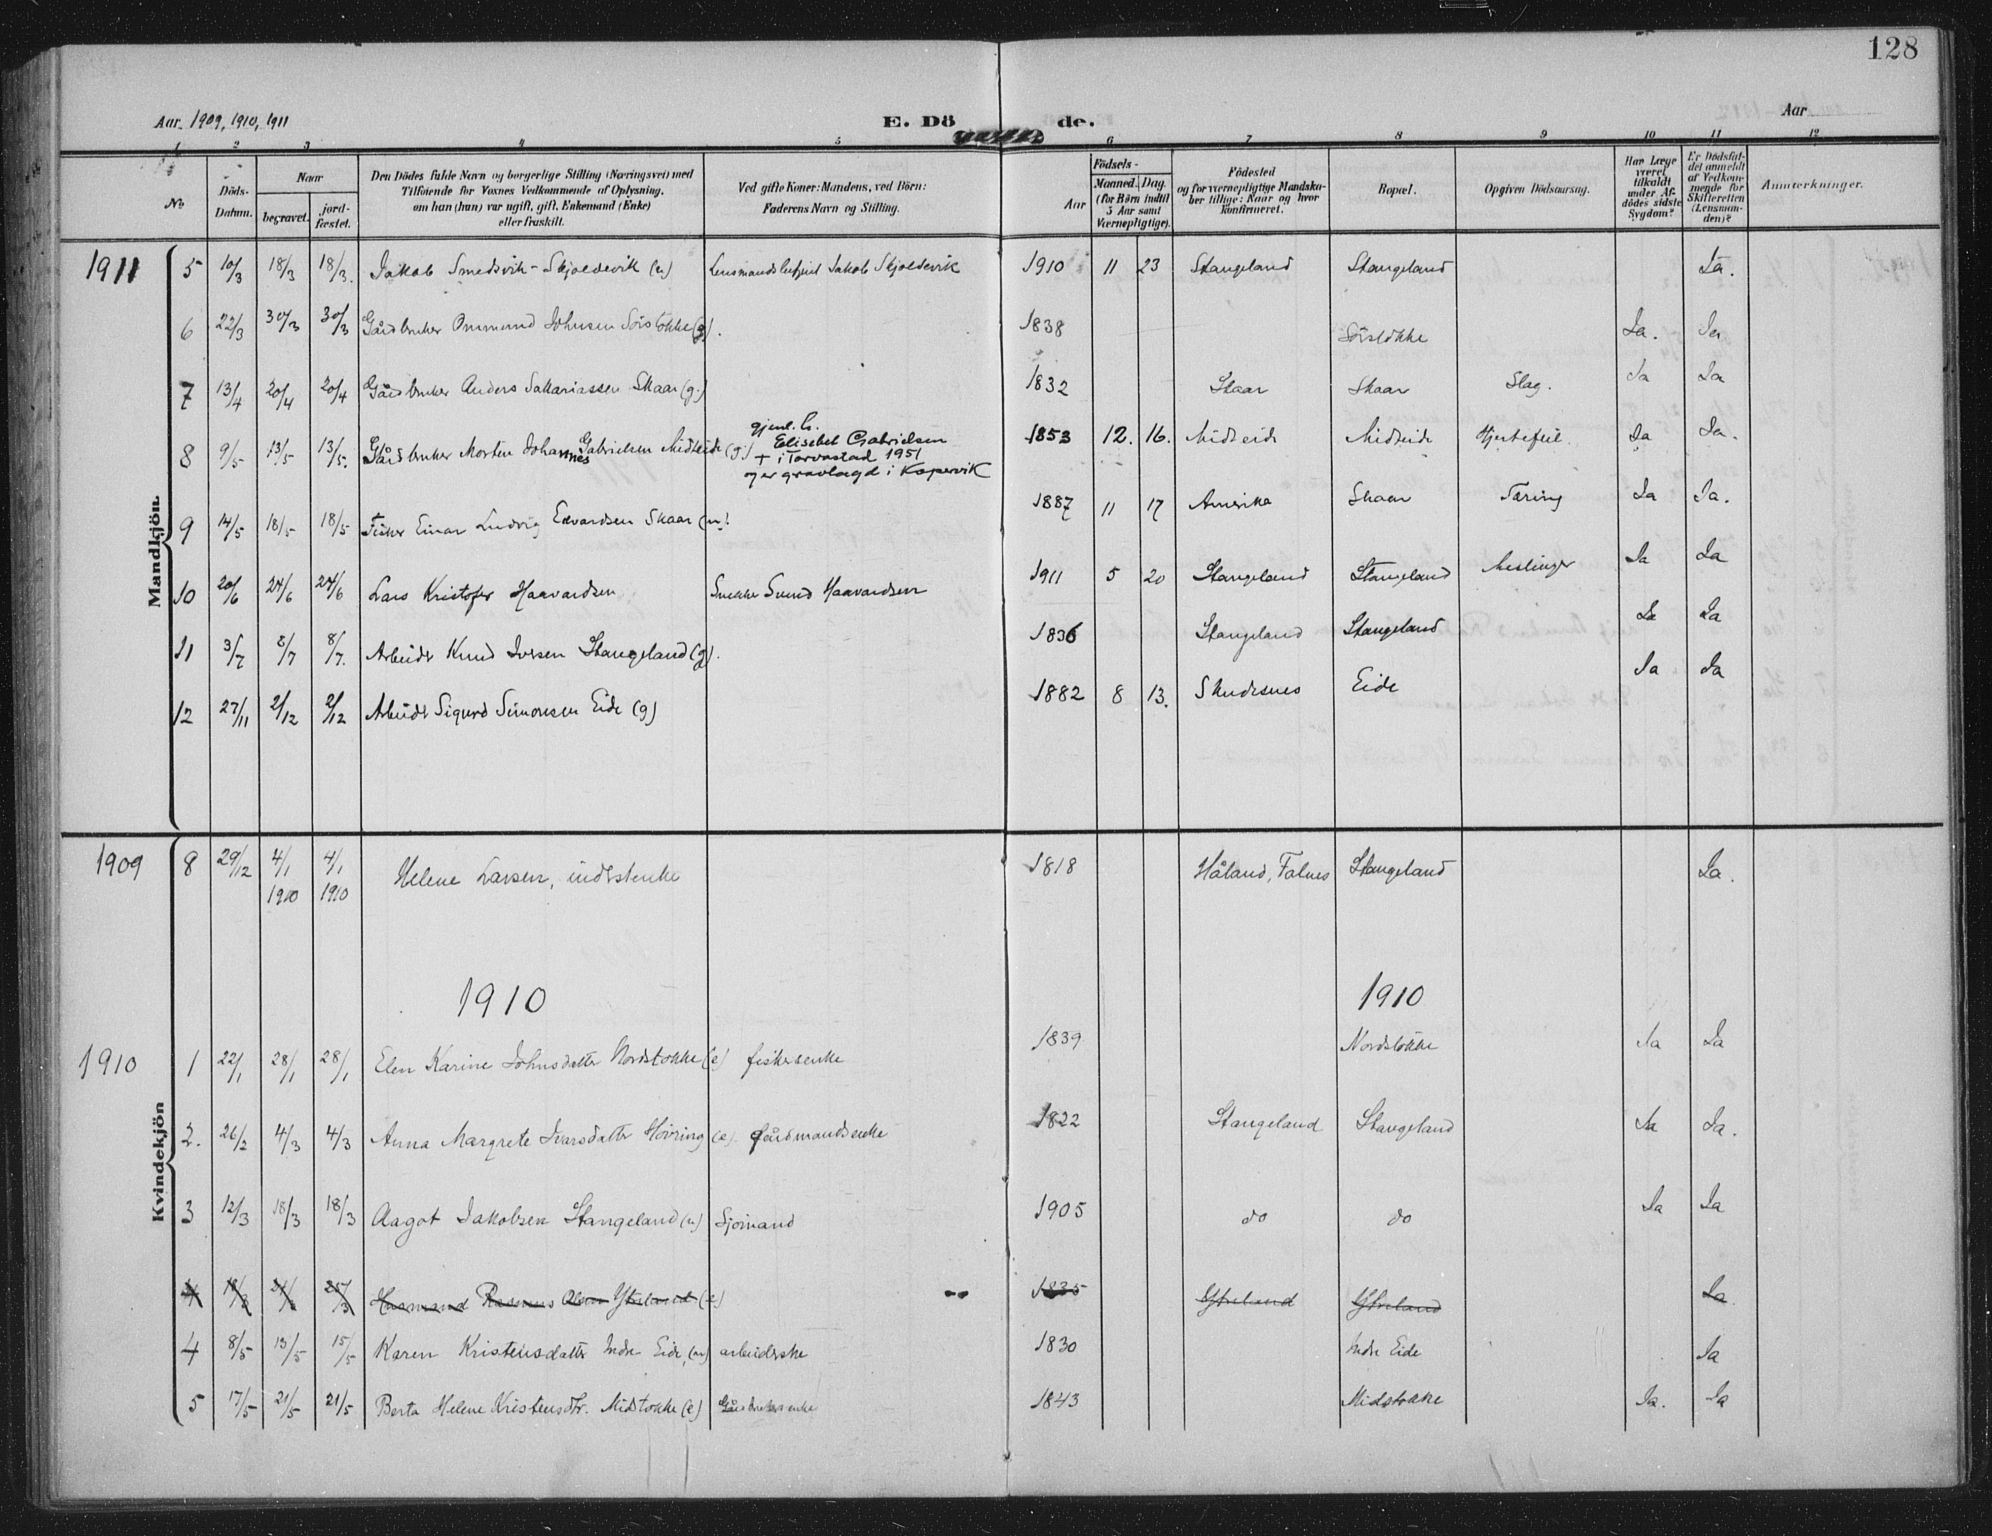 128
Aar 1909, 1910, 1911 E. Döde. Aar
1 2 3 4 5 6 7 8 9 10 11 12
No
Döds-Datum.
Naar
begravet.
jord-fæstet.
Den Dödes fulde Navn og borgerlige Stilling (Næringsvei) med
Tilföiende for Voxnes Vedkommende af Oplysning,
om han (hun) var ugift, gift, Enkemand (Enke)
eller fraskilt.
Ved gifte Koner: Mandens, ved Börn:
Faderens Navn og Stilling.
Födsels-
Aar
Maaned. Dag.
(for Börn indtil
5 Aar samt
Værnepligtige).
Födested
og for værnepligtige Mandska-
ber tillige: Naar og hvor
konfirmeret.
Bopæl.
Opgiven Dödsaarsag.
Har Læge
været
tilkaldt
under Af-
dödes sidste
Sygdom?
Er Dödsfal-
det anmeldt
af Vedkom-
mende for
Skifteretten
(Lensman-
den)?
Anmerkninger.
Mandkjön.
1911 5 10/3 18/3 18/3. Jakob Smedsvik-Skjoldevik (u) Jakob Skjoldevik 1910 11 23 Stangeland Stangeland Ja.
6 22/3 30/3 30/3 Gårdbruker Ommund Johnsen Sörstokke (g). 1838 Sörstokke Ja. Ja
7 13/4 20/4 20/4 Gårdbruker Anders Sakariassen Skaar (g.) 1832 Skaar Skaar Slag. Ja Ja
8 9/5 13/5 13/5. Gårdbruker Morten Johannes Gabrielsen Midteide (g.) 1853 12. 16. Midteide Midteide Hjertefeil. Ja Ja.
gjenl. h.
Elisebet Gabrielsen
+ i Torvastad 1951
og er gravlagd i Kopervik
9 14/5 18/5 18/5 Fisker Einar Ludvig Edvardsen Skaar (u). 1887 11 17 Amerika Skaar Tæring Ja Ja.
10 20/6 24/6 24/6 Lars Kristofer Haavardsen Snekker Svend Haavardsen 1911 5 20 Stangeland Stangeland Meslinger Ja Ja
11 3/7 8/7 8/7. Arbeider Knud Iversen Stangeland (g). 1836 Stangeland Stangeland Ja Ja
12 27/11 2/12 2/12 Arbeider Sigurd Simonsen Eide (g) 1882 8 13. Skudesnes Eide Ja Ja
Kvindekjön
1909 8 29/12 4/1 1910 4/1 1910 Helene Larsen, inderstenke 1818 Håland, Falnes Stangeland Ja.
1910 1910
1910 1 22/1 28/1 28/1 Elen Karine Johnsdatter Nordstokke (e) fiskerenke 1839 Nordstokke Ja Ja
2. 26/2 4/3 4/3 Anna Margrete Ivarsdatter Hovring (e). Gårdmandsenke 1822 Stangeland Stangeland Ja Ja.
3 12/3 18/3 18/3 Aagot Jakobsen Stangeland (u) Sjömand 1905 do do Ja Ja
4 25/3 Husmand Rasmus Olsen Ytreland (e) 1835 Ytreland Ytreland Ja
4 8/5 13/5 15/5 Karen Kristensdatter Indre Eide, (u) arbeiderske 1830 Indre Eide Ja
5 17/5 21/5 21/5 Berta Helene Kristensdtr. Midstokke (e) Gårdbrukersenke 1843 Midstokke Ja. Ja